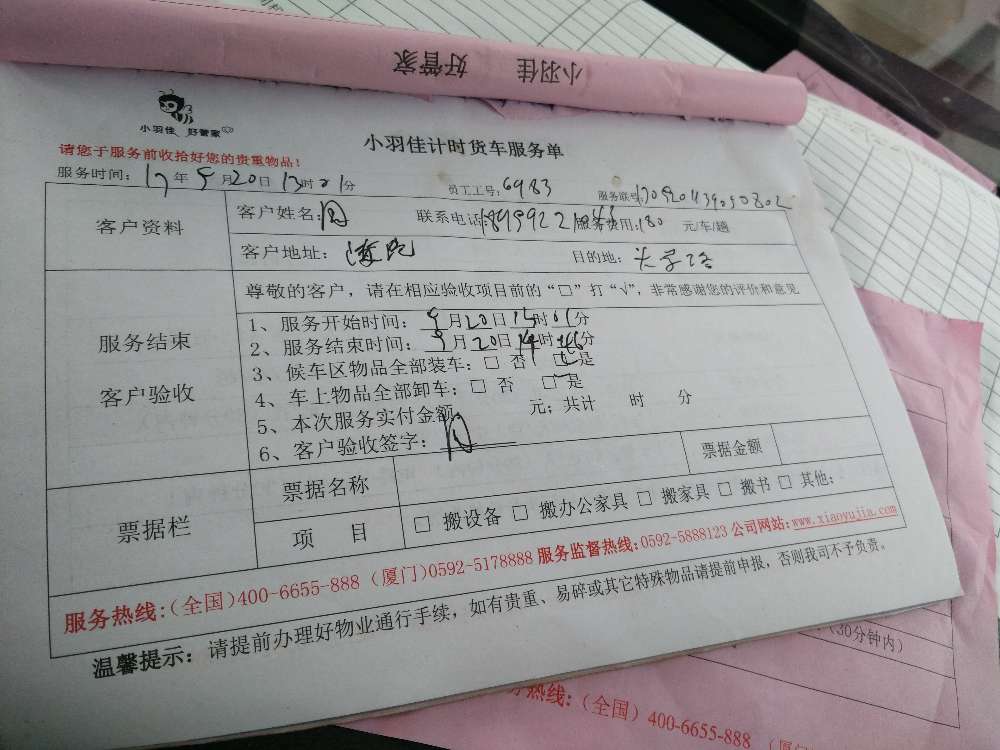 小羽佳 好管家
小羽佳 好管家
小羽佳计时货车服务单
请您于服务前收拾好您的贵重物品!
服务时间: 17年9月20日13时01分 员工工号: 6983 服务联号:
客户资料
客户姓名: 联系电话: 服务费用: 180 元/车/趟
客户地址: 目的地:
服务结束
客户验收
尊敬的客户，请在相应验收项目前的“□”打“√”，非常感谢您的评价和意见
1、服务开始时间: 9月20日13时01分
2、服务结束时间: 9月20日14时分
3、候车区物品全部装车: □ 否 □ 是
4、车上物品全部卸车: □ 否 □ 是
5、本次服务实付金额 元; 共计 时 分
6、客户验收签字:
票据栏
票据名称 票据金额
项 目 □ 搬设备 □ 搬办公家具 □ 搬家具 □ 搬书 □ 其他:
服务热线:(全国)400-6655-888 (厦门)0592-5178888 服务监督热线:0592-5888123 公司网站:www.xiaoyujia.com
温馨提示: 请提前办理好物业通行手续，如有贵重、易碎或其它特殊物品请提前申报，否则我司不予负责。
(30分钟内)
务热线: (全国) 400-6655-888 (厦门